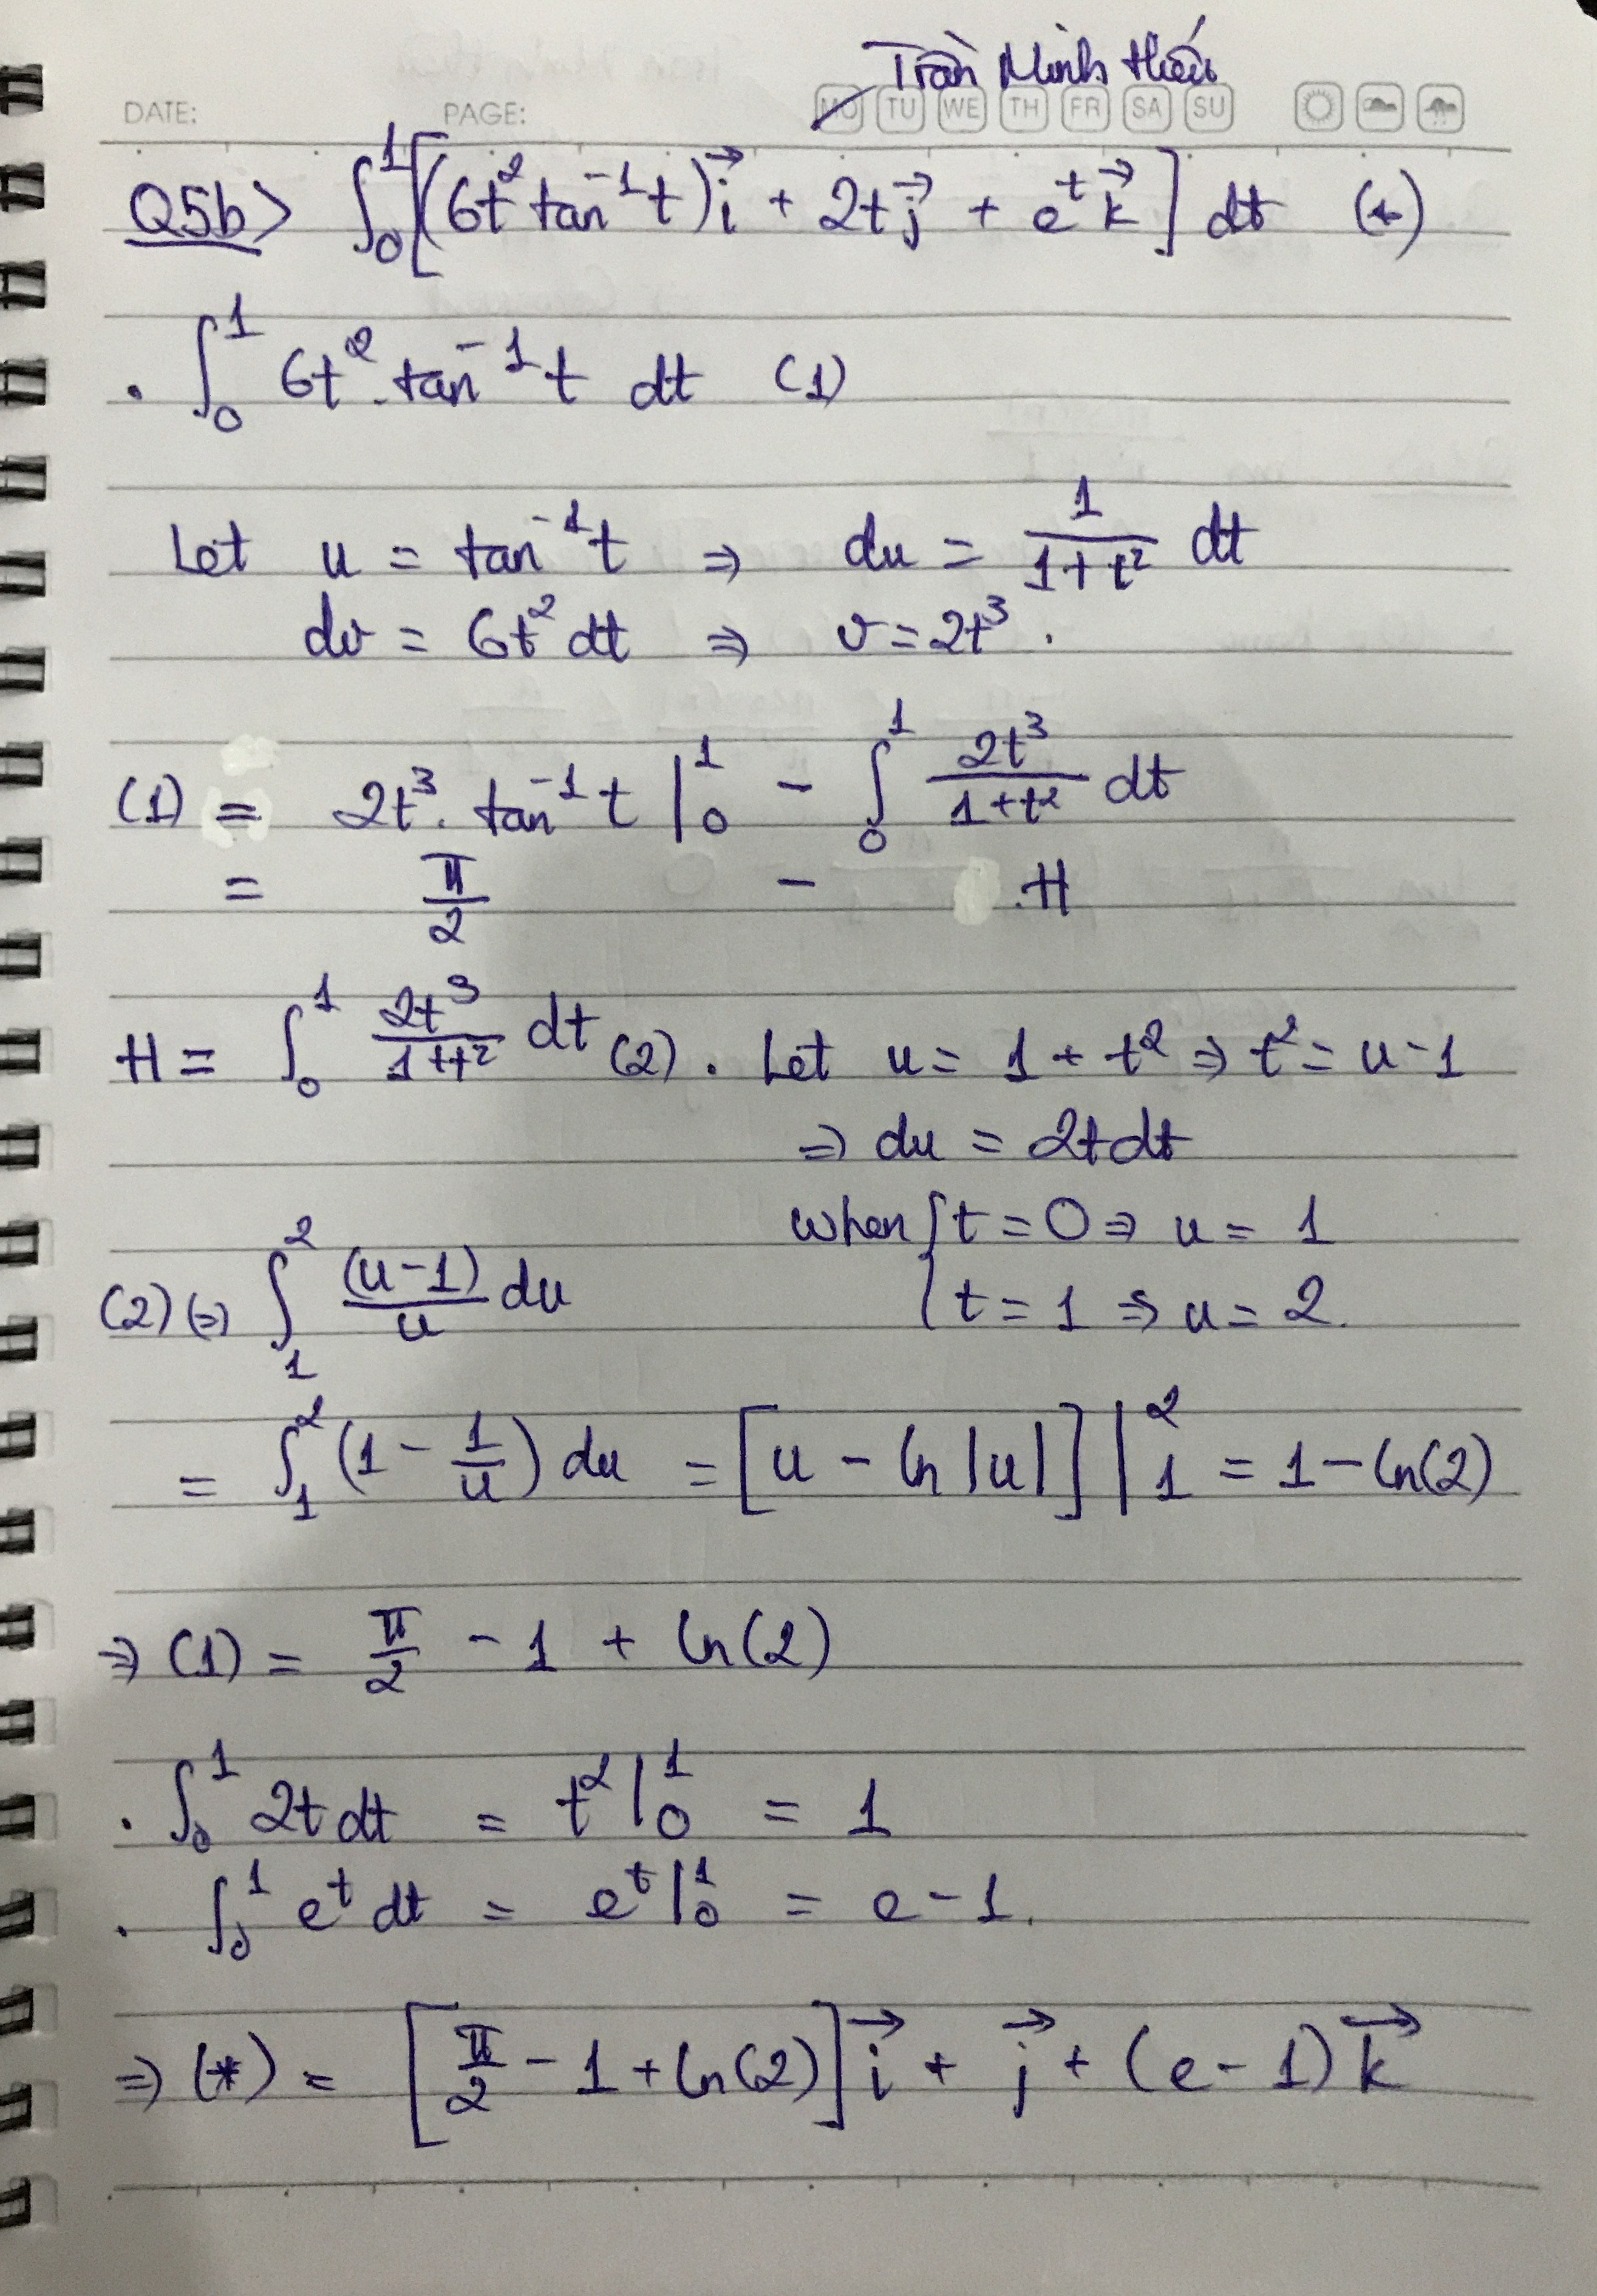 Trần Minh Hiếu
DATE: PAGE: MO TU WE TH FR SA SU
Q5b> ∫₀¹ [(6t² tan⁻¹t)i⃗ + 2t j⃗ + eᵗ k⃗] dt (*)
. ∫₀¹ 6t². tan⁻¹t dt (1)
Let u = tan⁻¹t ⇒ du = 1/(1+t²) dt
dv = 6t² dt ⇒ v = 2t³.
(1) = 2t³. tan⁻¹t |₀¹ - ∫₀¹ 2t³/(1+t²) dt
= π/2 - H
H = ∫₀¹ 2t³/(1+t²) dt (2). Let u = 1 + t² ⇒ t² = u-1
⇒ du = 2t dt
when { t = 0 ⇒ u = 1
t = 1 ⇒ u = 2.
(2) ⇔ ∫₁² (u-1)/u du
= ∫₁² (1 - 1/u) du = [u - ln|u|] |₁² = 1 - ln(2)
⇒ (1) = π/2 - 1 + ln(2)
. ∫₀¹ 2t dt = t² |₀¹ = 1
. ∫₀¹ eᵗ dt = eᵗ |₀¹ = e - 1.
⇒ (*) = [π/2 - 1 + ln(2)] i⃗ + j⃗ + (e - 1) k⃗